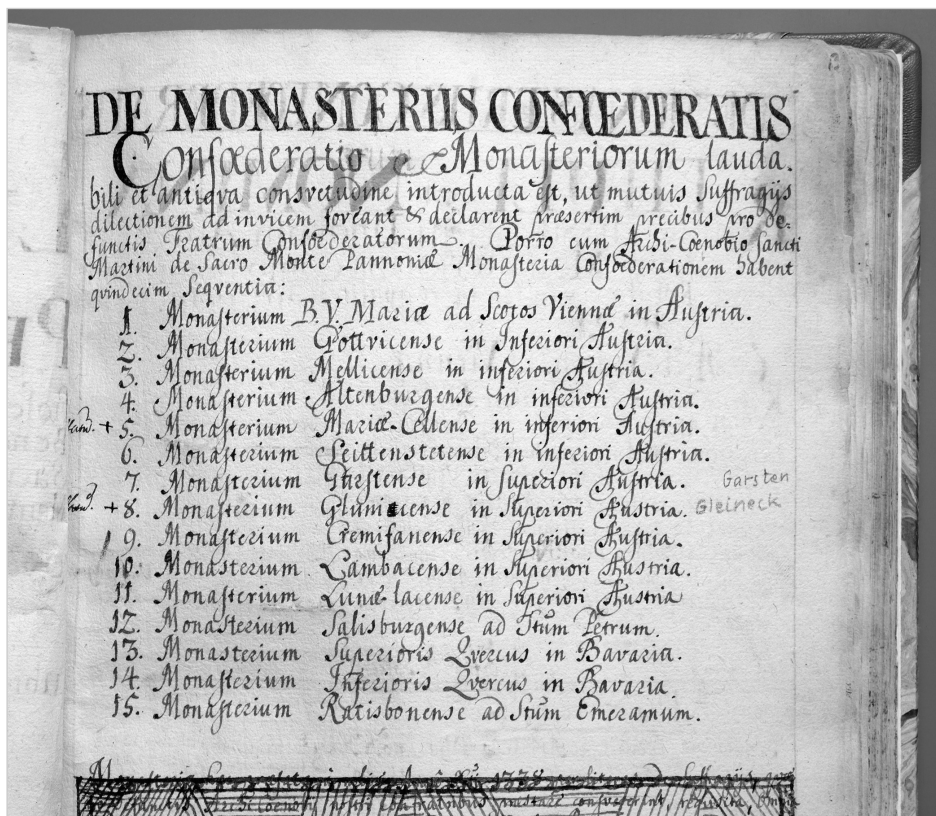 DE MONASTERIIS CONFŒDERATIS
Confœderatio Monasteriorum lauda.
bili et antiqva consvetudine introducta est, ut mutuis suffragijs
dilectionem ad invicem foveant & declarent præsertim precibus pro de-
functis Fratrum Confœderatorum. Porro cum Archi-Cœnobio Sancti
Martini de Sacro Monte Pannoniæ Monasteria Confœderationem habent
qvindecim Seqventia:
1. Monasterium B.V. Mariæ ad Scotos Viennæ in Austria.
2. Monasterium Gottvicense in Inferiori Austria.
3. Monasterium Mellicense in inferiori Austria.
4. Monasterium Altenburgense in inferiori Austria.
+ 5. Monasterium Mariæ-Cellense in inferiori Austria.
6. Monasterium Seittenstetense in inferiori Austria.
7. Monasterium Garstense in Superiori Austria. Garsten
+ 8. Monasterium in Superiori Austria. Gleineck
9. Monasterium Cremifanense in Superiori Austria.
10. Monasterium Lambacense in Superiori Austria.
11. Monasterium Lunæ-lacense in Superiori Austria
12. Monasterium Salisburgense ad Stum Petrum.
13. Monasterium Superioris Qvercus in Bavaria.
14. Monasterium Inferioris Qvercus in Bavaria.
15. Monasterium Ratisbonense ad Stum Emeramum.
1738
nostri confratribus præstare consveverant, requisita,